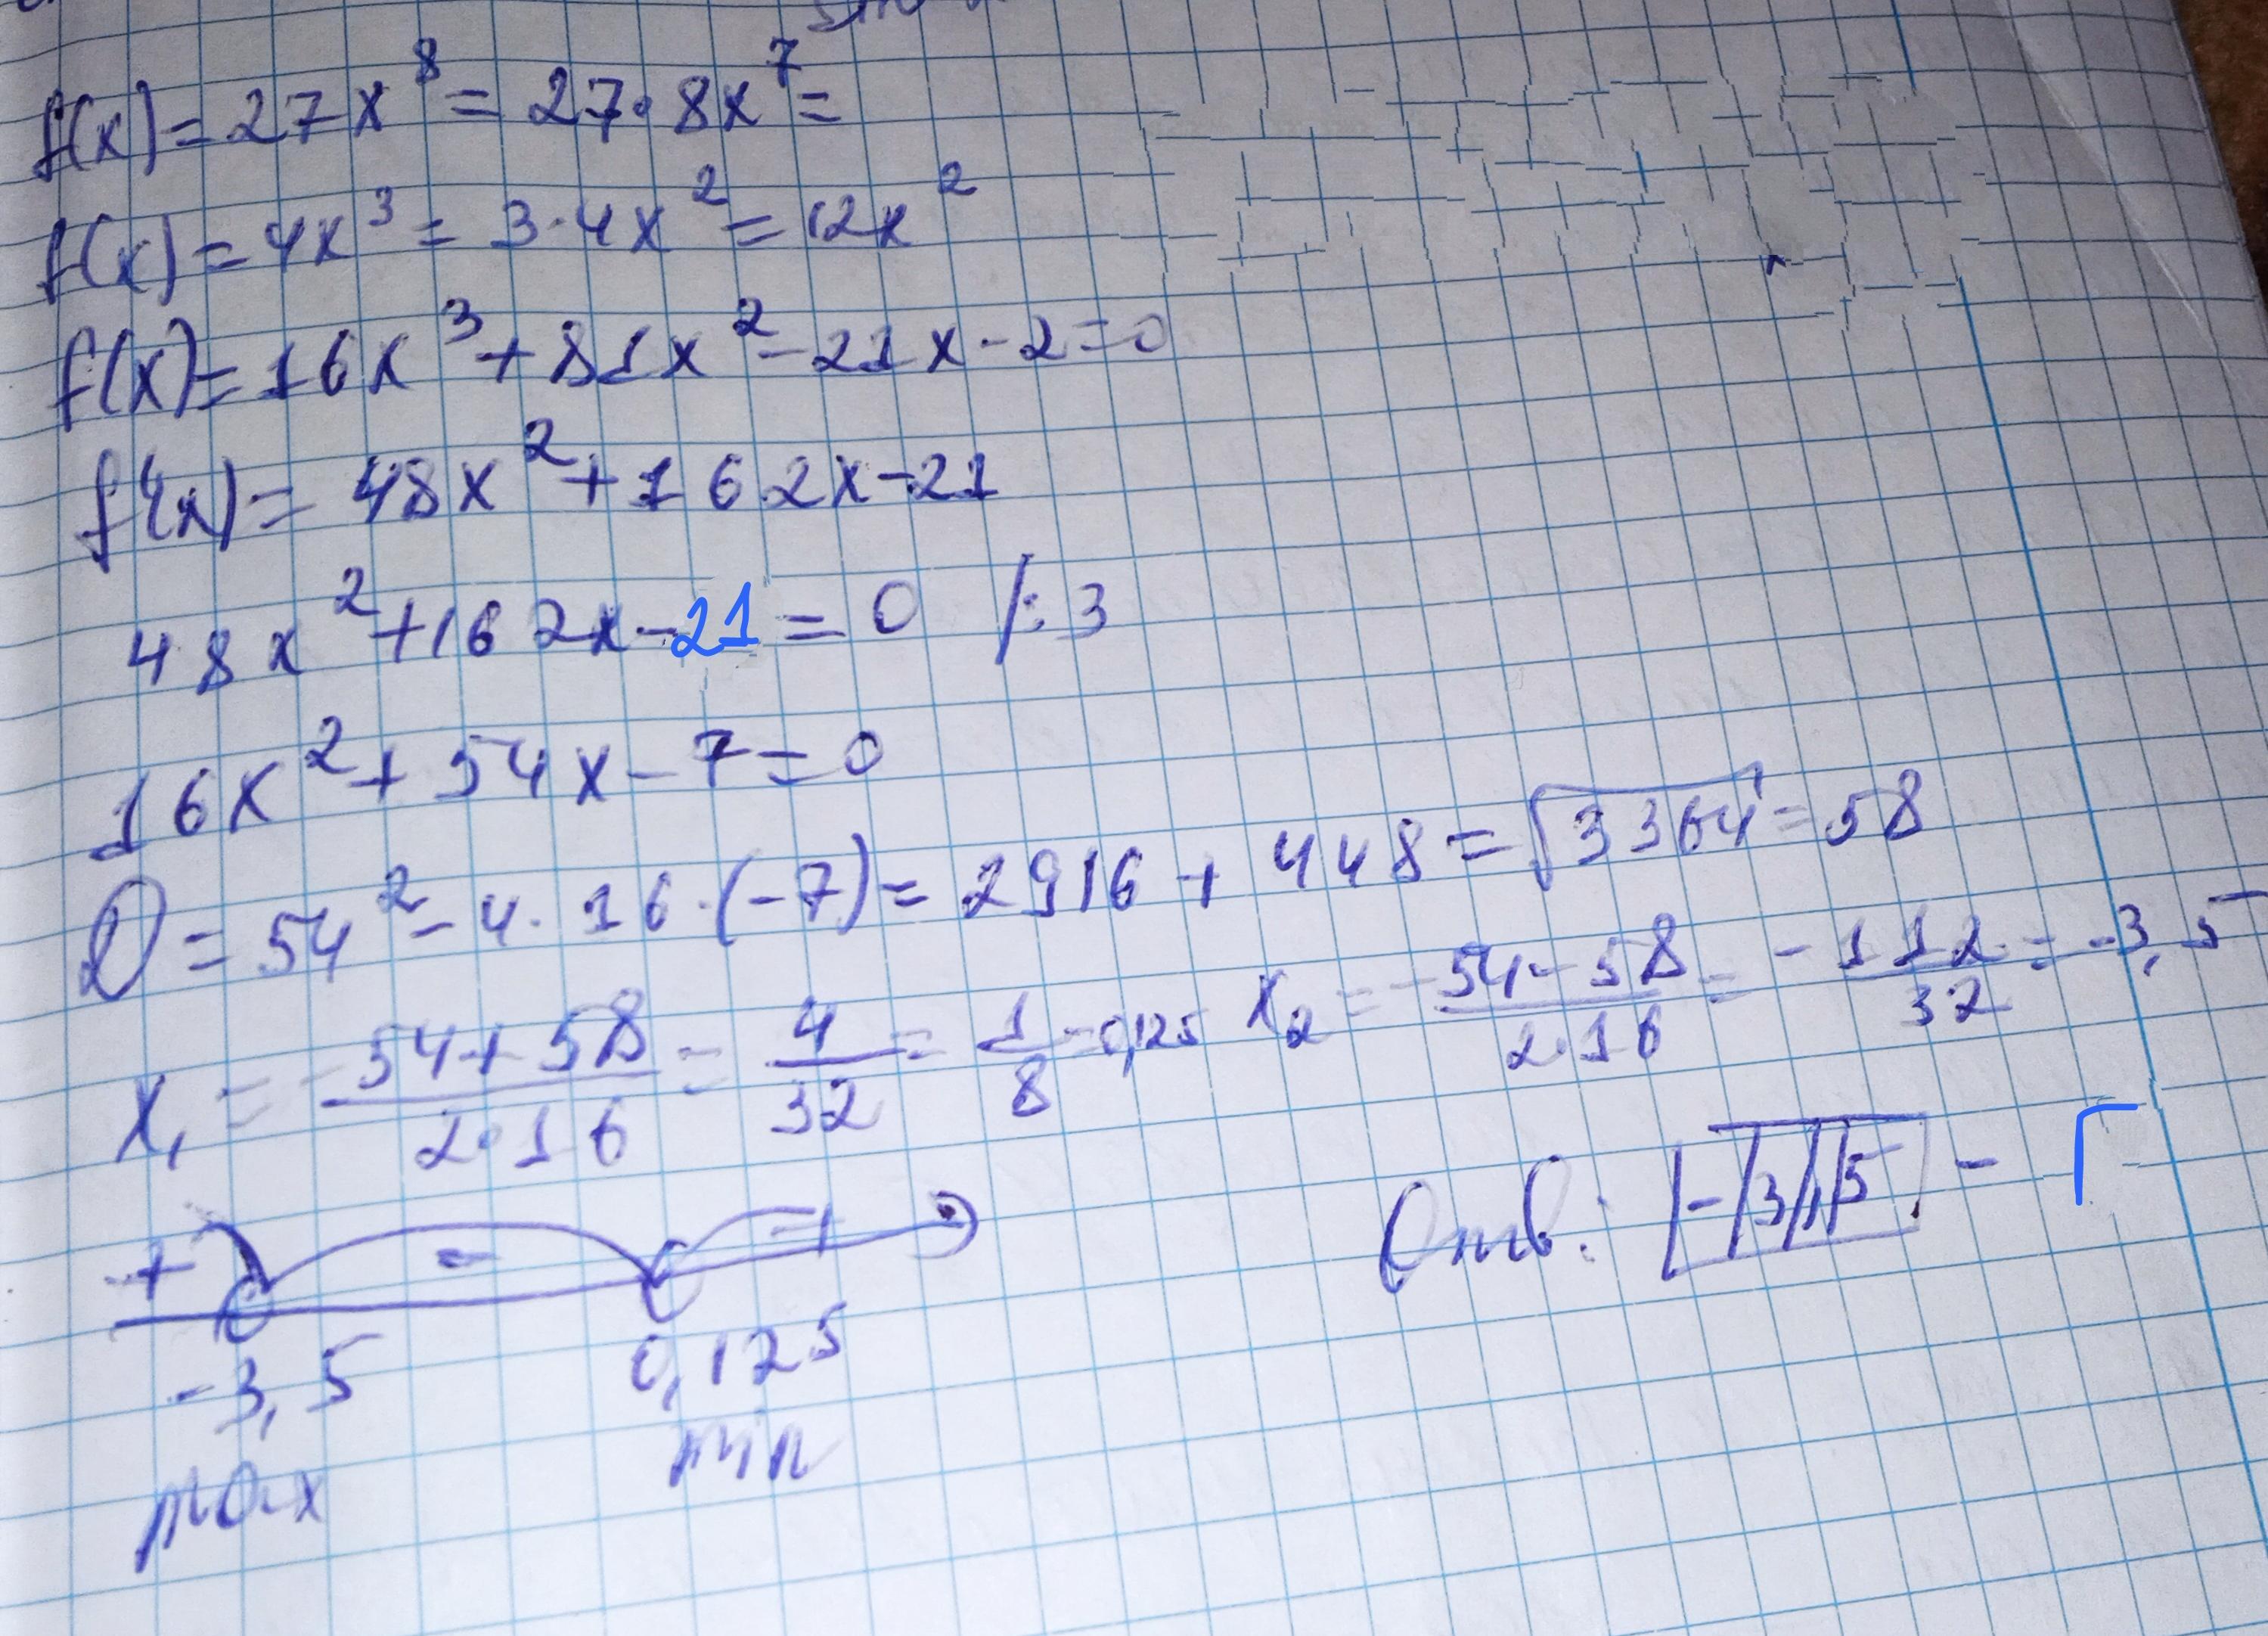 f(x) = 27x⁸ = 27·8x⁷ =
f(x) = 4x³ = 3·4x² = 12x²
f(x) = 16x³ + 81x² - 21x - 2 = 0
f'(x) = 48x² + 162x - 21
48x² + 162x - 21 = 0 /:3
16x² + 54x - 7 = 0
D = 54² - 4·16·(-7) = 2916 + 448 = √3364 = 58
x₁ = (-54+58)/(2·16) = 4/32 = 1/8 = 0,125 x₂ = (-54-58)/(2·16) = -112/32 = -3,5
+ - +
-3,5 0,125
max min
Отв: -3,5 - Г